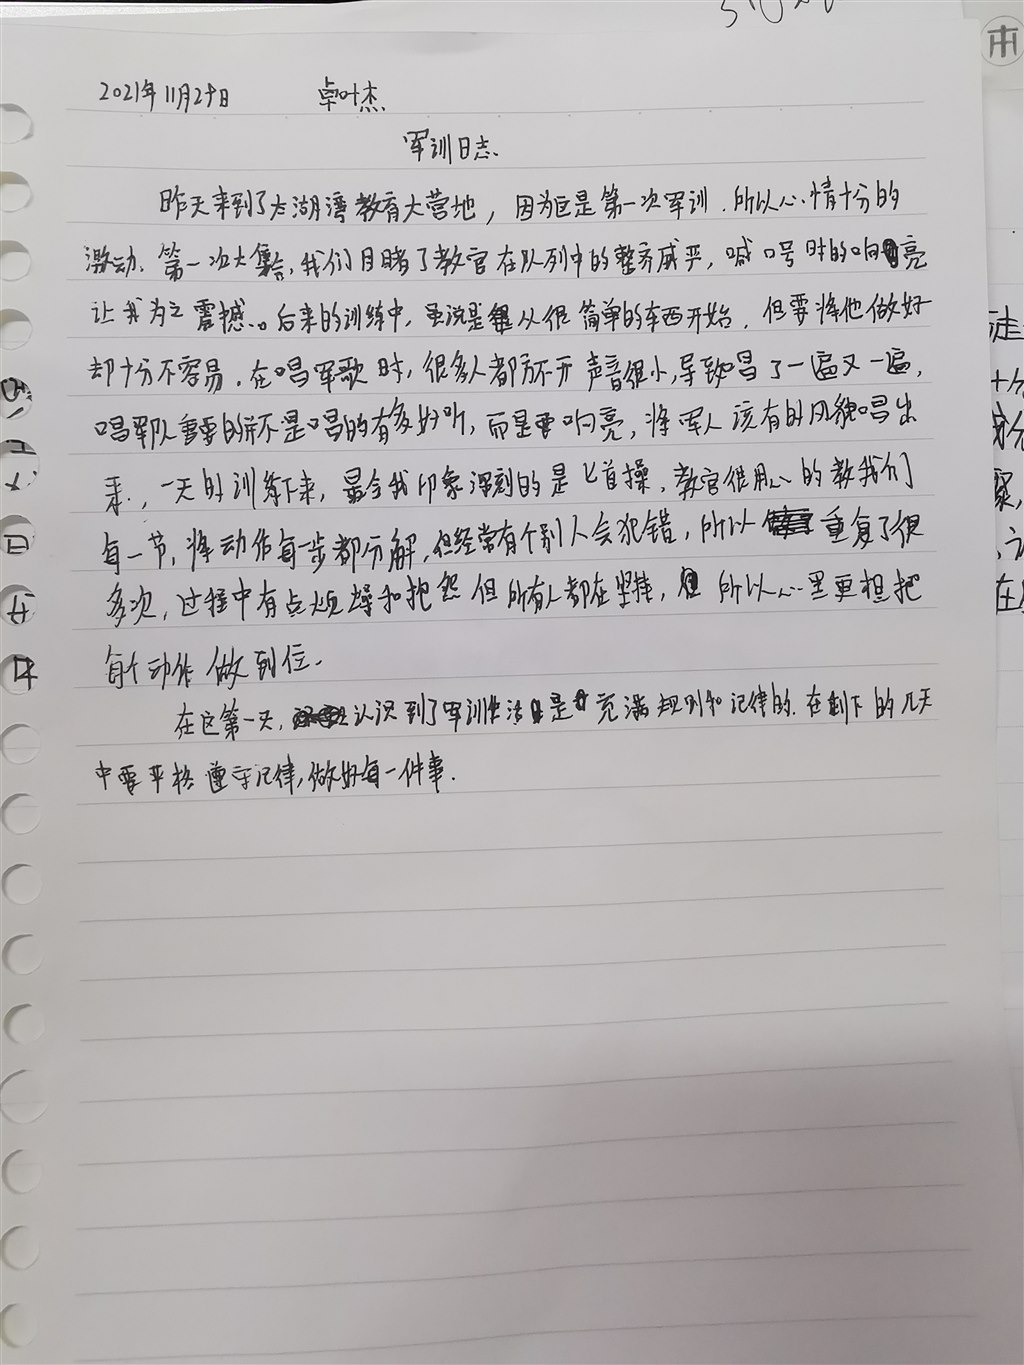 2021年11月29日 卓叶杰
军训日志
昨天来到了太湖湾教育大营地，因为这是第一次军训．所以心情十分的
激动．第一次大集合，我们目睹了教官在队列中的整齐威严，喊口号时的响亮
让我为之震撼。后来的训练中，虽说是从很简单的东西开始．但要将他做好
却十分不容易．在唱军歌时，很多人都放不开声音很小，导致唱了一遍又一遍，
唱军队重要的并不是唱的有多好听，而是要响亮，将军人该有的风貌唱出
来．，一天的训练下来，最令我印象深刻的是匕首操．教官很用心的教我们
每一节，将动作每一步都分解，但经常有个别人会犯错，所以重复了很
多次，过程中有点烦燥和抱怨但所有人都在坚持，所以心里更想把
每个动作做到位．
在这第一天，认识到了军训生活是充满规则和记律的．在剩下的几天
中要严格遵守记律，做好每一件事．